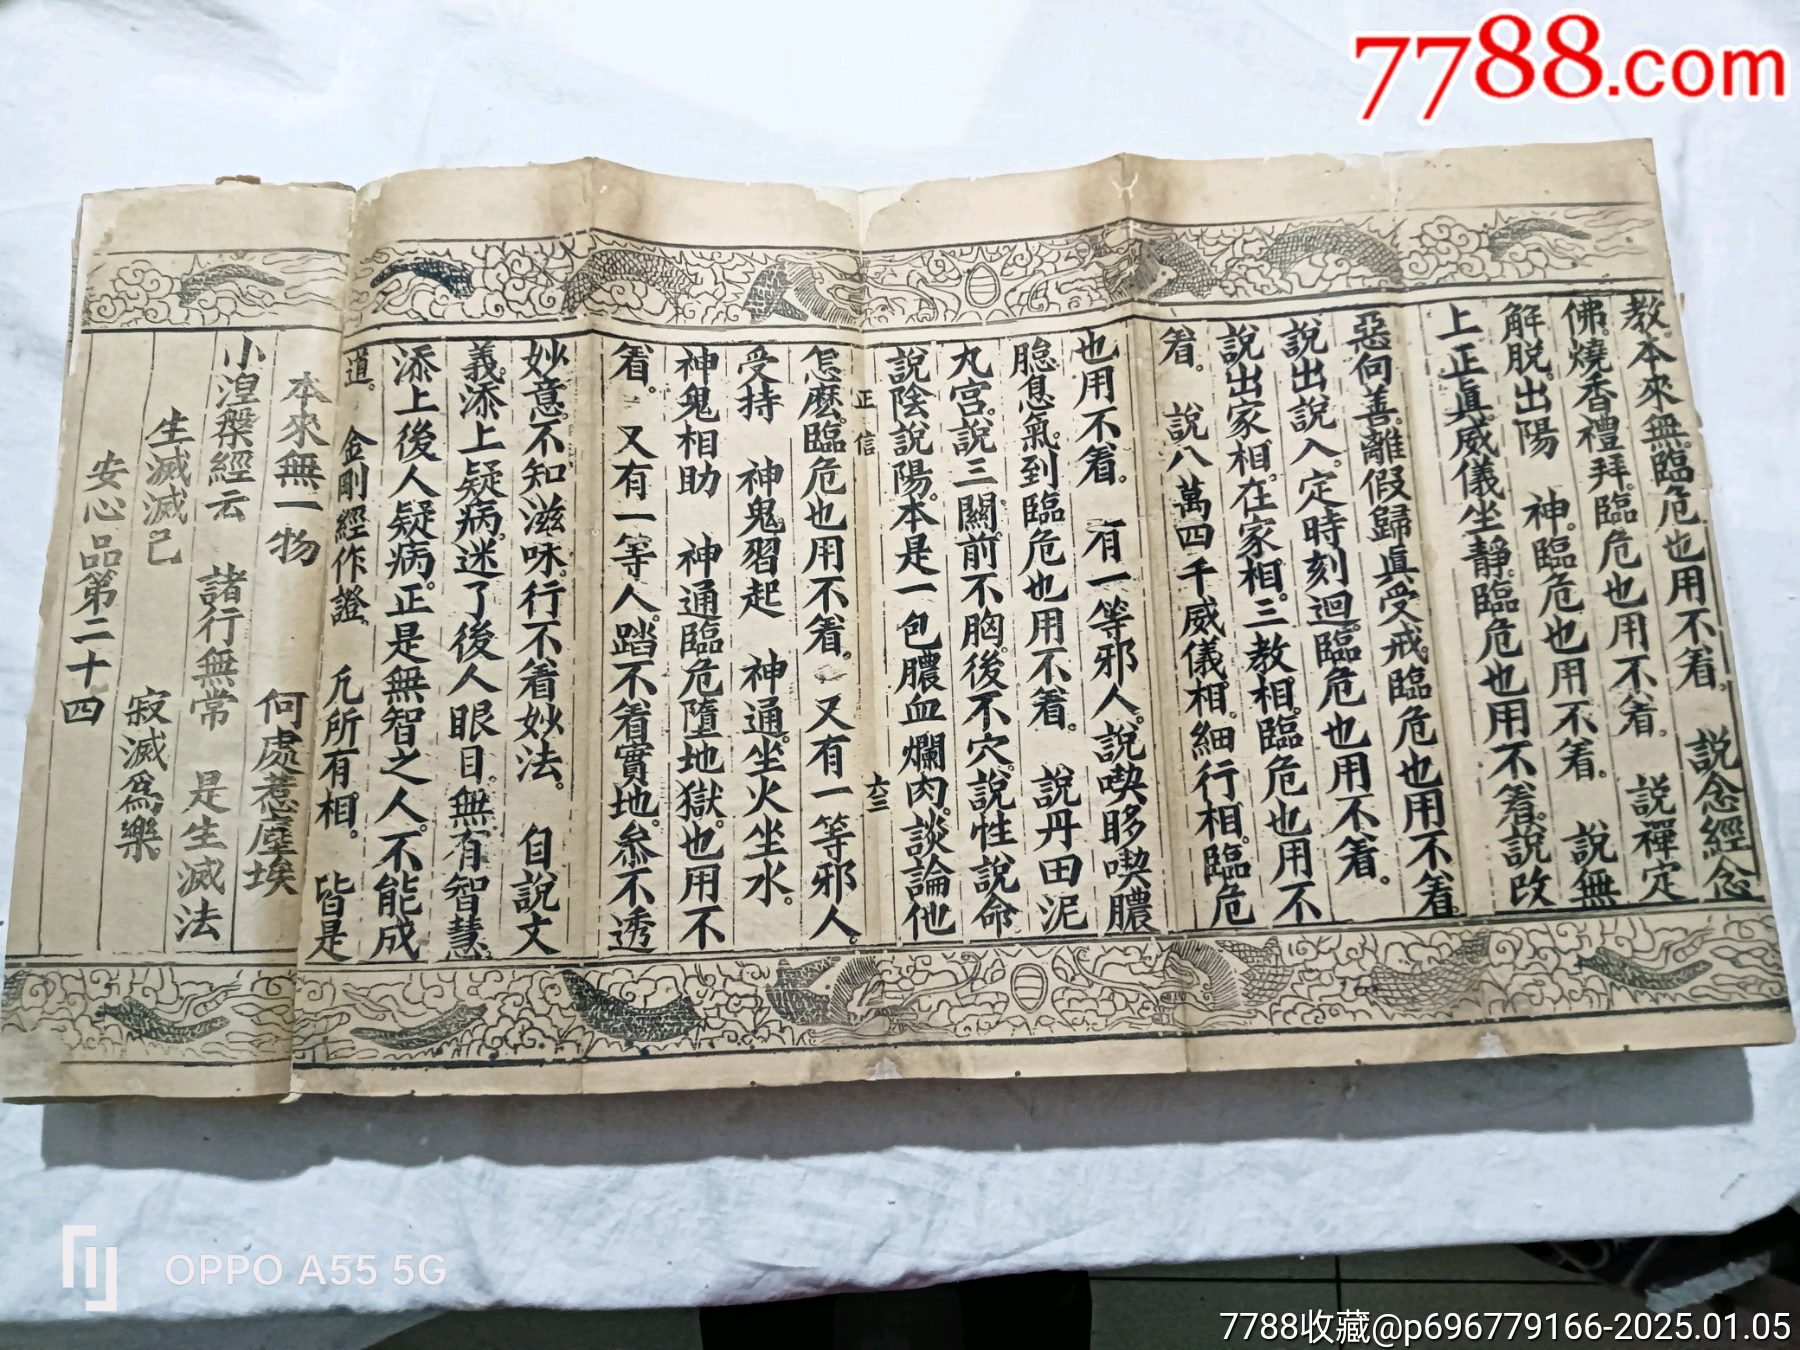 7788.com
教。本來無。臨危也用不着。 説念經念
佛。燒香禮拜。臨危也用不着。 説禪定
解脱出陽 神。臨危也用不着。 説無
上正真威儀坐靜。臨危也用不着。説改
惡向善。離假歸真受戒。臨危也用不着。
説出説入。定時刻迴。臨危也用不着。
説出家相。在家相。三教相。臨危也用不
着。 説八萬四千威儀相。細行相。臨危
也用不着。 有一等邪人。説喫
胎息氣。到臨危也用不着。 説丹田泥
九宮。説三關。前不胸。後不穴。説性説命
説陰説陽。本是一包膿血爛肉。談論他
正信 六三
怎麽。臨危也用不着。 又有一等邪人。
受持 神鬼。習起 神通。坐火坐水。
神鬼相助 神通臨危墮地獄。也用不
着。 又有一等人。踏不着實地。叅不透
妙意。不知滋味。行不着妙法。 自説文
義。添上疑病。迷了後人眼目。無有智慧
添上後人疑病。正是無智之人。不能成
道。 金剛經作證 凡所有相。 皆是
本來無一物 何處惹塵埃
小涅槃經云 諸行無常 是生滅法
生滅滅已 寂滅爲樂
安心品第二十四
OPPO A55 5G
7788收藏@p696779166-2025.01.05